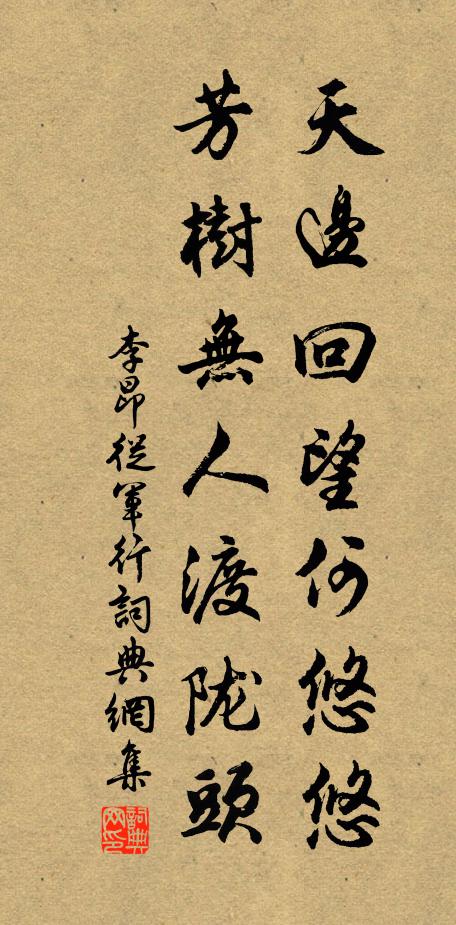 天邊回望何悠悠
芳樹無人渡陇頭
李昂從軍行詞典網集
詞典网印